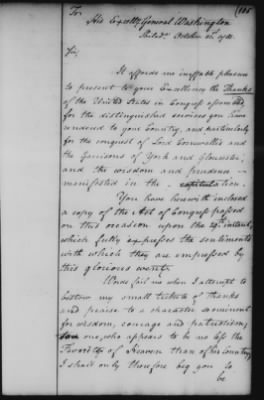 To,
His Excelly General Washington
Philada October 1781.
Sir,
It affords me ineffable pleasure
to present to your Excellency the Thanks
of the United States in Congress assembled
for the distinguished services you have
rendered to your Country, and particularly
for the conquest of Lord Cornwallis and
the Garrisons of York and Gloucester,
and the wisdom and prudence
manifested in the capitulation.
You have herewith inclosed
a copy of the Act of Congress passed
on this occasion upon the 29th instant,
which fully expresses the sentiments
with which they are impressed by
this glorious event.
Words fail me when I attempt to
bestow my small tribute of Thanks
and praise to a character so eminent
for wisdom, courage and patriotism,
one, who appears to be no less the
Favorite of Heaven than of his Country,
I shall only therefore beg you to
be